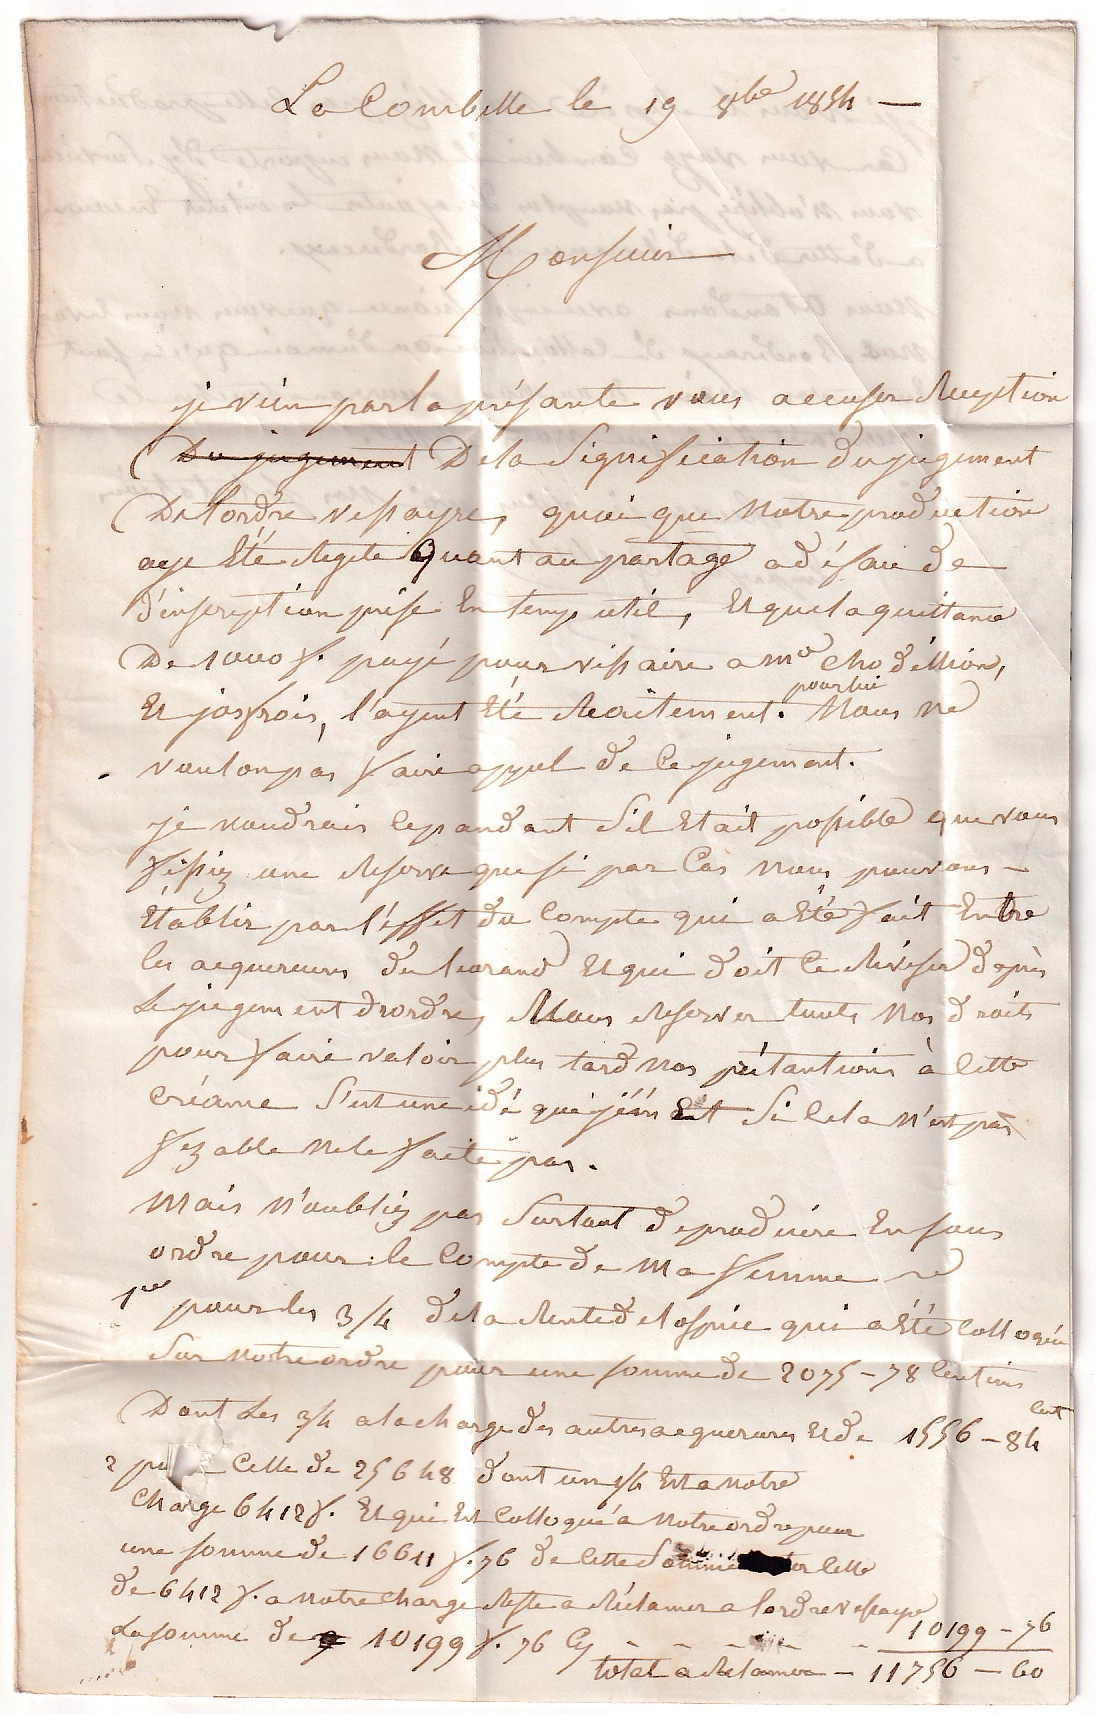 La Combelle le 19 8bre 1854 —
Monsieur
je vien par la présante vous accuser Réception
Du jugement De la Signification du jugement
De l'ordre Vessayre, quoi que notre production
aye Eté Rejeté Quant au partage a défau de
d'inscription prise En temp util, Et que la quittance
De 1000 f. payé pour vissaire a me
Et josfrois, l'ayent Eté Réaitement. pour lui Nous ne
voulon pas faire appel de Ce jugement.
je voudrais Cepandant S'il Etait possible que vous
fissiez une Reserve que si par Cas nous pouvons —
Etablir par l'éffet du Compte qui a Eté fait Entre
les acquereurs du Et qui doit Ce Réviser d'après
Le jugement d'ordre, Nous Reserver touts Nos droits
pour faire valoir plus tard nos prétantions à Cette
Créance S'est une idé que j'émèt Si Cela n'est pas
fezable ne le faite pas.
Mais N'oubliez pas Surtout de produire En sous
ordre pour le Compte de Ma femme
1re pour les 3/4 de la Rente qui a Eté Colloquée
Sur notre ordre pour une somme de 2075 - 78 Centims
Dont Les 3/4 a la charge des autres acquereurs Et de 1556 - 84 cent
2 pour Celle de 25648 dont un 1/4 Est a notre
Charge 6412 f. Et qui Est Colloqué a notre ordre pour
une somme de 16611 f. 76 de Cette Somme Cette
de 6412 f. a notre charge Reste a Réclamer a l'ordre vessayre
La somme de 10199 f. 76 Cy - - - - - 10199 - 76
total a Réclamer — 11756 - 60